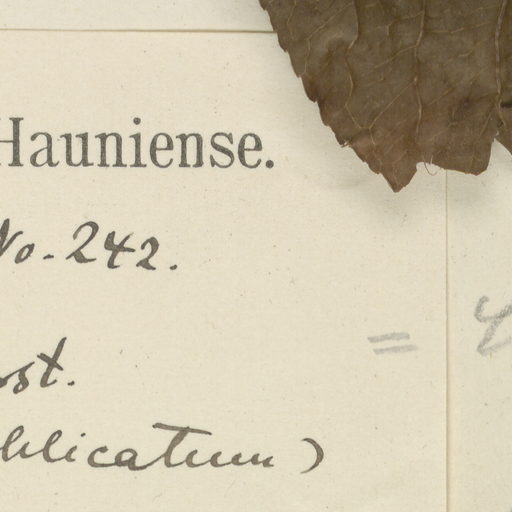 Hauniense.
No. 242.
rst.
plicatum)
=